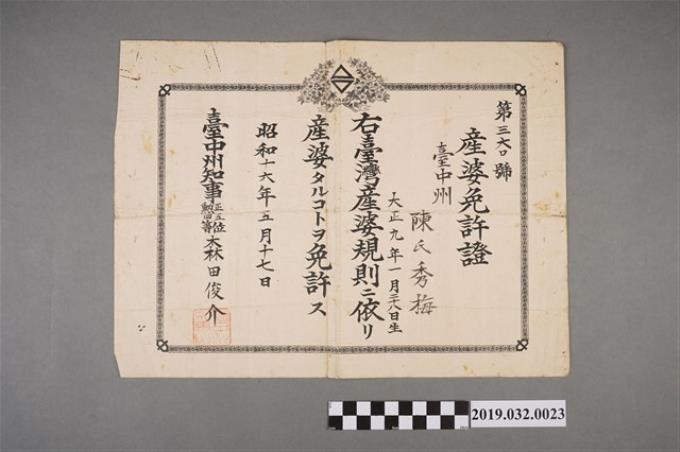 第三六〇號
産婆免許證
臺中州
陳氏秀梅
大正九年一月二十八日生
右臺灣産婆規則ニ依リ
産婆タルコトヲ免許ス
昭和十六年五月十七日
臺中州知事正五位勲四等森田俊介
2019.032.0023